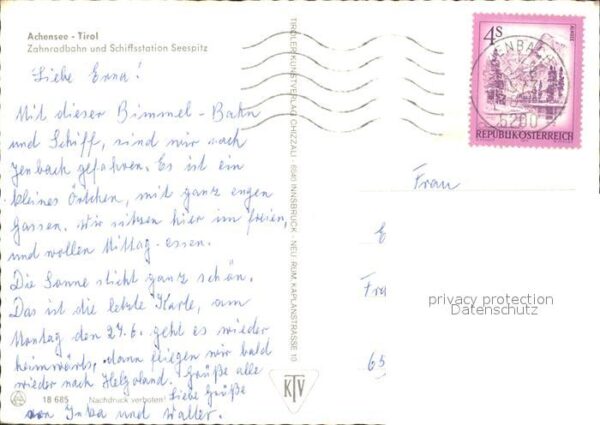 Achensee - Tirol
Zahnradbahn und Schiffsstation Seespitz
Liebe Erna!
Mit dieser Bimmel-Bahn
und Schiff, sind wir nach
Jenbach gefahren. Es ist ein
kleines Örtchen, mit ganz engen
Gassen. Wir sitzen hier im freien,
und wollen Mittag-essen.
Die Sonne sticht ganz schön.
Das ist die letzte Karte, am
Montag den 24.6. geht es wieder
heimwärts, dann fliegen wir bald
wieder nach Helgoland. Grüße alle
Liebe Grüße
von Inka und Walter.
18 685 Nachdruck verboten!
TIROLER KUNSTVERLAG CHIZZALI 6061 INNSBRUCK - NEU RUM, KAPLANSTRASSE 10
KTV
4S
REPUBLIK ÖSTERREICH
JENBACH
6200
Frau
E
Fra
65
privacy protection
Datenschutz